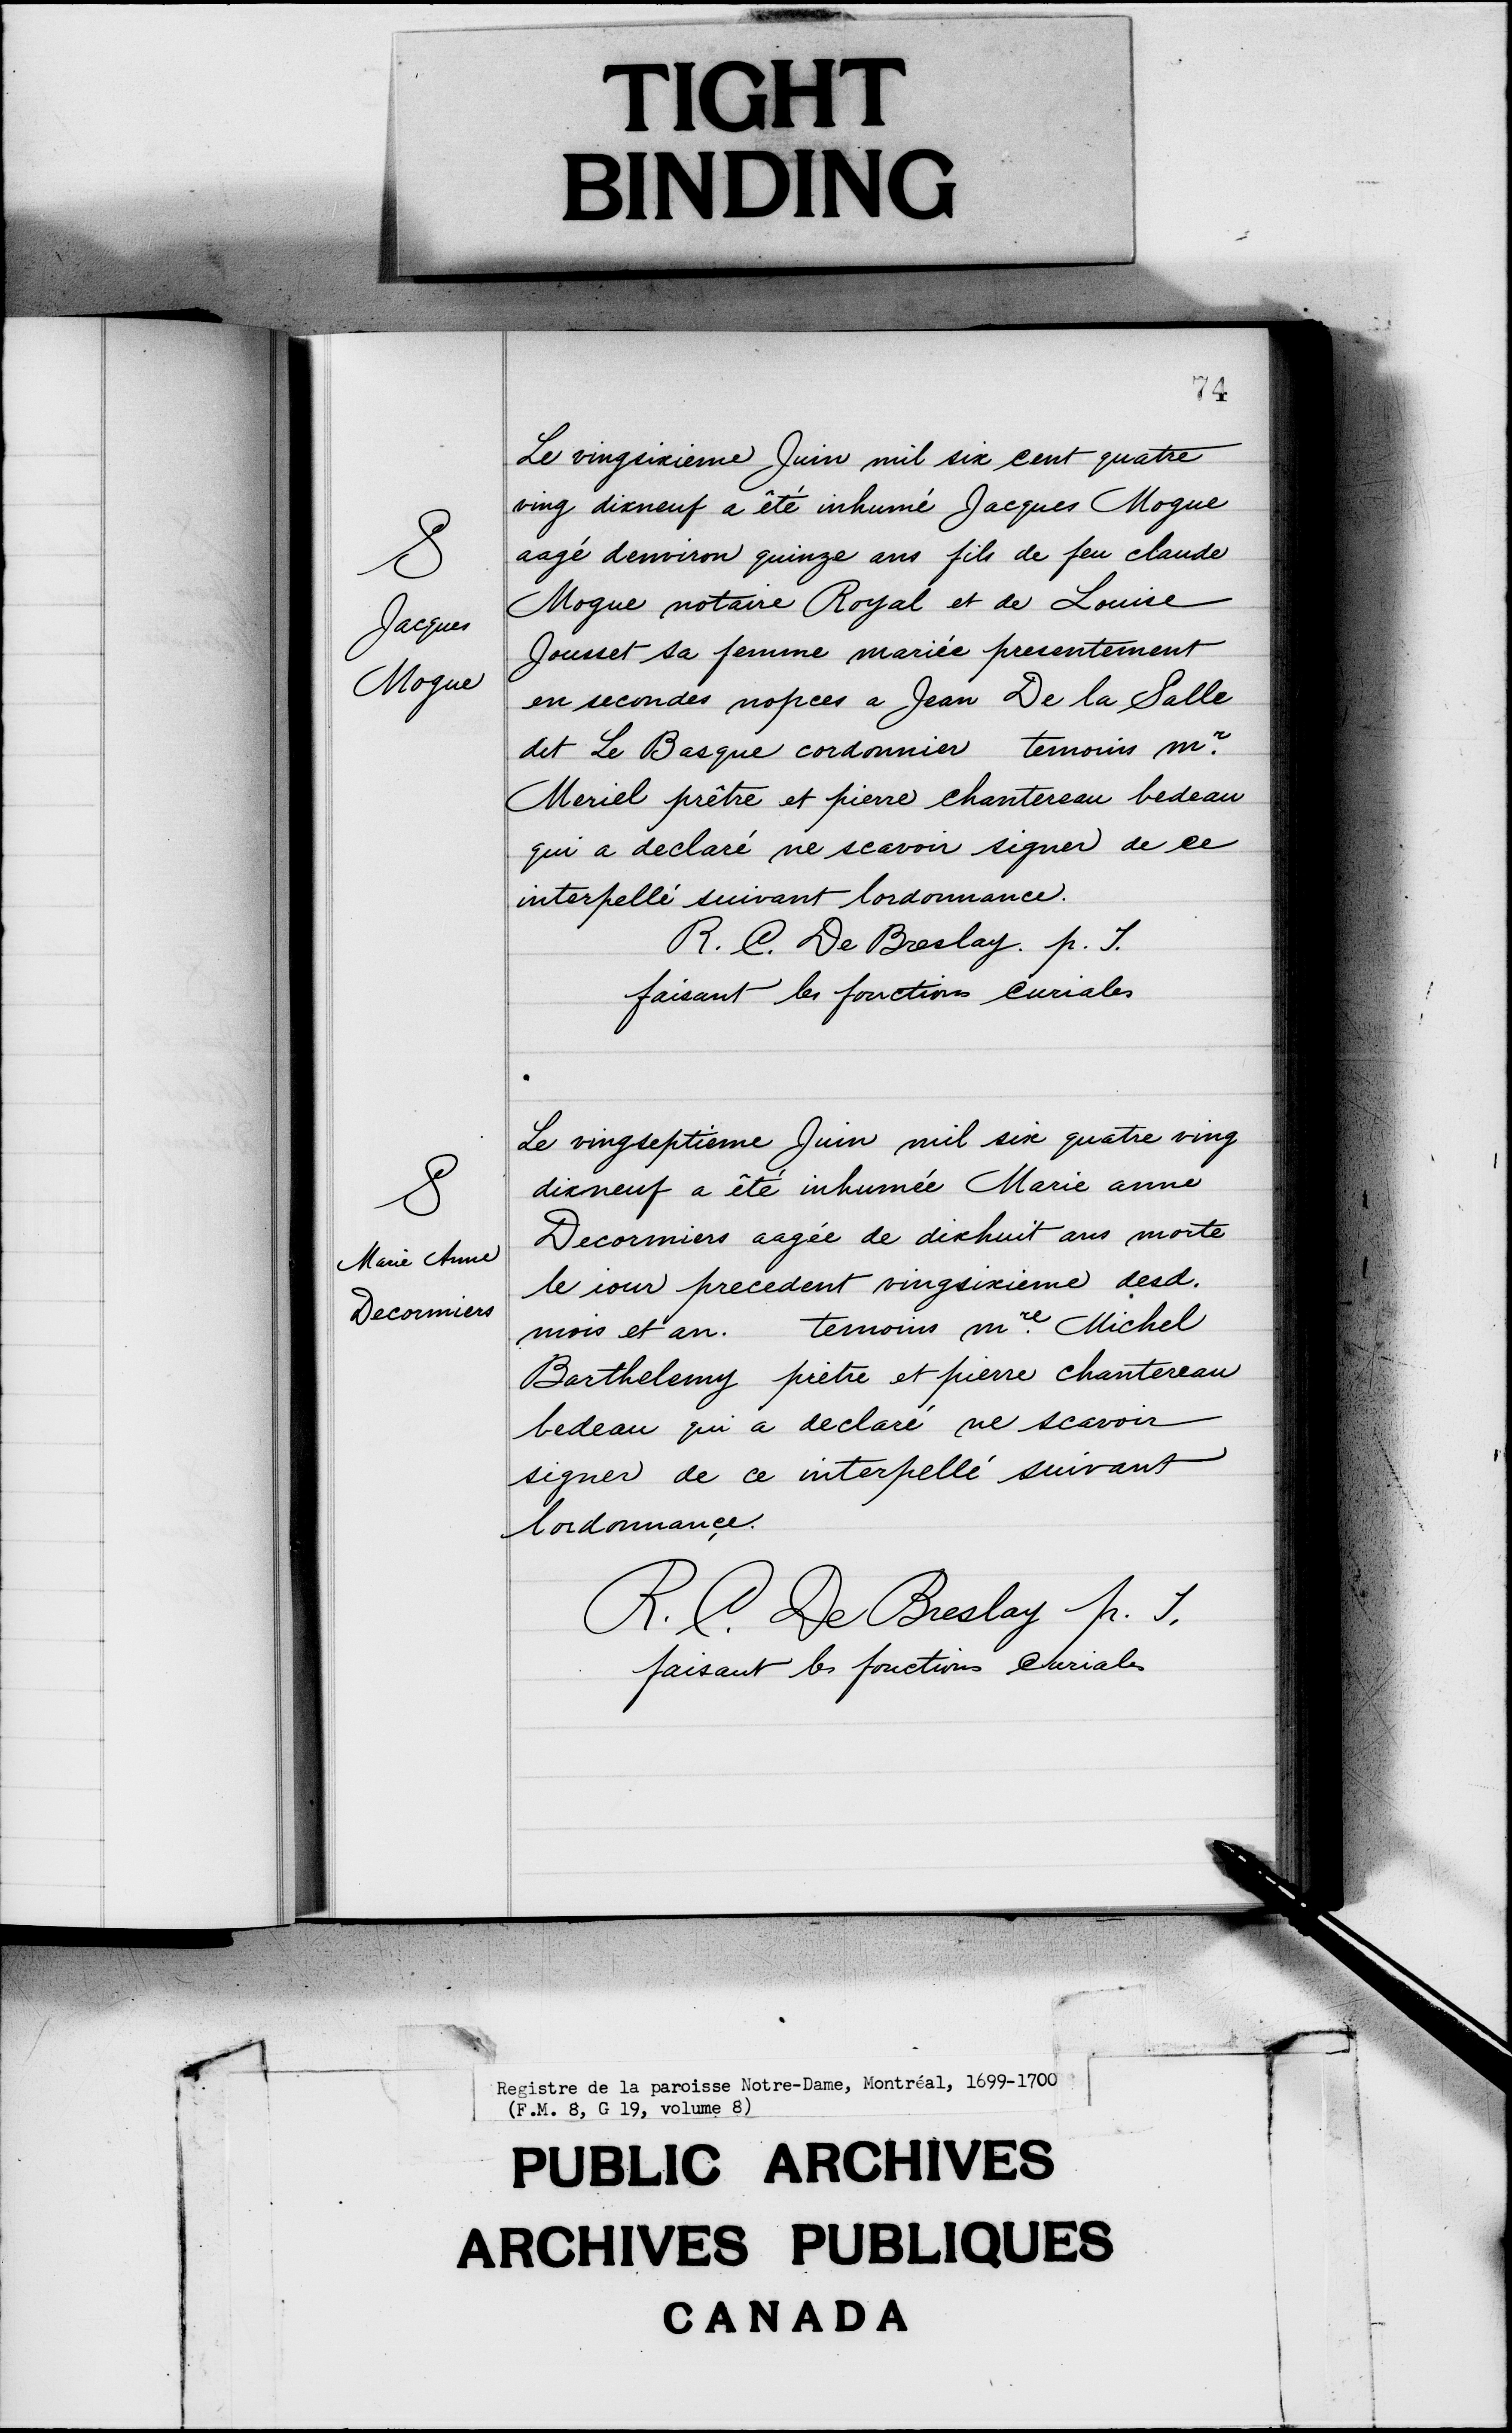 TIGHT
BINDING
74
Le vingsixieme Juin mil six cent quatre
ving dixneuf a été inhumé Jacques Mogue
aagé denviron quinze ans fils de feu claude
Mogue notaire Royal et de Louise
Jousset sa femme mariée presentement
en secondes nopces a Jean De la Salle
dit Le Basque cordonnier temoins mr.
Meriel prêtre et pierre chantereau bedeau
qui a declaré ne scavoir signer de ce
interpellé suivant lordonnance.
R. C. De Breslay. p. J.
faisant les fonctions curiales
S
Jacques
Mogue
Le vingseptieme Juin mil six quatre ving
dixneuf a été inhumée Marie anne
Decormiers aagée de dixhuit ans morte
le iour precedent vingsixieme desd.
mois et an. temoins mre. Michel
Barthelemy prêtre et pierre chantereau
bedeau qui a declaré ne scavoir
signer de ce interpellé suivant
lordonnance.
R. C. De Breslay p. J.
faisant les fonctions curiales
S
Marie Anne
Decormiers
Registre de la paroisse Notre-Dame, Montréal, 1699-1700
(F.M. 8, G 19, volume 8)
PUBLIC ARCHIVES
ARCHIVES PUBLIQUES
CANADA